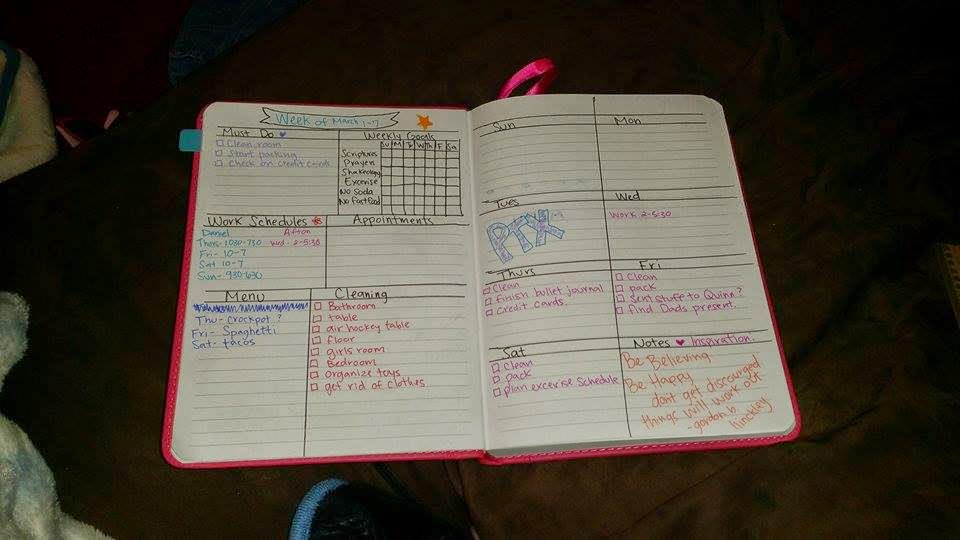 Week of March 1-7
Must Do
Clean room
Start packing
Check on credit cards
Weekly Goals
Su M T W Th F Sa
Scriptures
Prayer
Shakeology
Exercise
No Soda
No Fastfood
Work Schedules
Daniel
Thurs- 1030-730
Fri- 10-7
Sat 10-7
Sun- 930-630
Afton
Wed - 2-5:30
Appointments
Menu
Thu- Crockpot ?
Fri- Spaghetti
Sat- tacos
Cleaning
Bathroom
table
air hockey table
floor
girls room
Bedroom
organize toys
get rid of clothes
Sun
Mon
Tues
PTX
Wed
Work 2-5:30
Thurs
Clean
finish bullet journal
credit cards
Fri
Clean
pack
Sent stuff to Quinn?
find Dads present
Sat
Clean
pack
plan excerise Schedule
Notes Inspiration
Be Believing
Be Happy
dont get discouraged
things will work out
- gordon b
hinckley